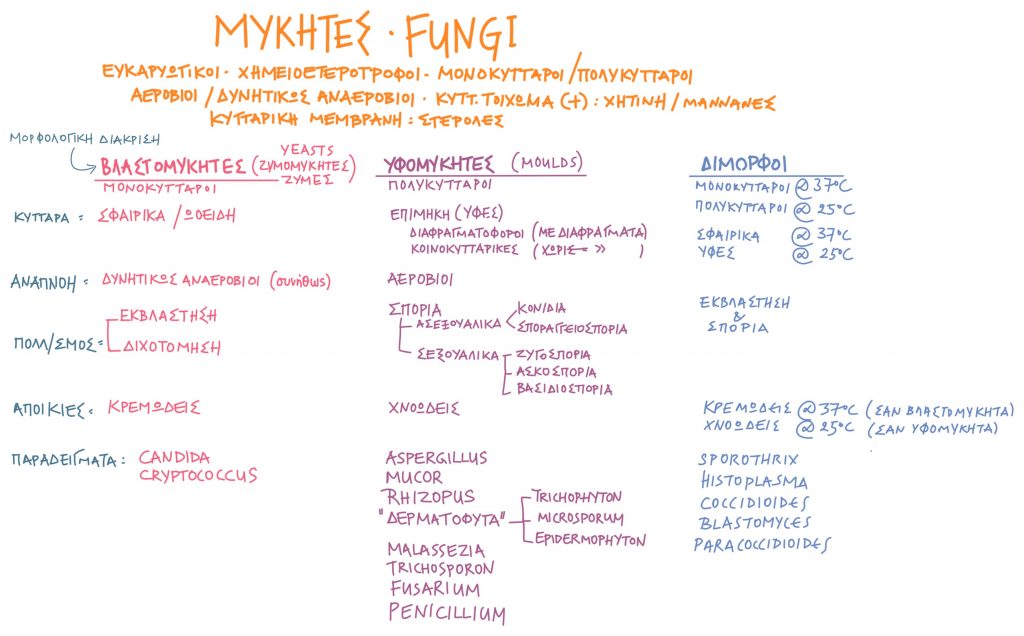 ΜΥΚΗΤΕΣ · FUNGI
ΕΥΚΑΡΥΩΤΙΚΟΙ · ΧΗΜΕΙΟΕΤΕΡΟΤΡΟΦΟΙ · ΜΟΝΟΚΥΤΤΑΡΟΙ/ΠΟΛΥΚΥΤΤΑΡΟΙ
ΑΕΡΟΒΙΟΙ/ΔΥΝΗΤΙΚΩΣ ΑΝΑΕΡΟΒΙΟΙ · ΚΥΤΤ. ΤΟΙΧΩΜΑ (+) : ΧΗΤΙΝΗ/ΜΑΝΝΑΝΕΣ
ΚΥΤΤΑΡΙΚΗ ΜΕΜΒΡΑΝΗ : ΣΤΕΡΟΛΕΣ
ΜΟΡΦΟΛΟΓΙΚΗ ΔΙΑΚΡΙΣΗ
ΒΛΑΣΤΟΜΥΚΗΤΕΣ (YEASTS
ΖΥΜΟΜΥΚΗΤΕΣ)
ΖΥΜΕΣ
ΜΟΝΟΚΥΤΤΑΡΟΙ
ΥΦΟΜΥΚΗΤΕΣ (MOULDS)
ΠΟΛΥΚΥΤΤΑΡΟΙ
ΔΙΜΟΡΦΟΙ
ΜΟΝΟΚΥΤΤΑΡΟΙ @ 37°C
ΠΟΛΥΚΥΤΤΑΡΟΙ @ 25°C
ΚΥΤΤΑΡΑ = ΣΦΑΙΡΙΚΑ / ΩΟΕΙΔΗ
ΕΠΙΜΗΚΗ (ΥΦΕΣ)
ΔΙΑΦΡΑΓΜΑΤΟΦΟΡΟΙ (ΜΕ ΔΙΑΦΡΑΓΜΑΤΑ)
ΚΟΙΝΟΚΥΤΤΑΡΙΚΕΣ (ΧΩΡΙΣ — >> )
ΣΦΑΙΡΙΚΑ @ 37°C
ΥΦΕΣ @ 25°C
ΑΝΑΠΝΟΗ = ΔΥΝΗΤΙΚΩΣ ΑΝΑΕΡΟΒΙΟΙ (συνήθως)
ΑΕΡΟΒΙΟΙ
ΠΟΛΛ/ΣΜΟΣ =
ΕΚΒΛΑΣΤΗΣΗ
ΔΙΧΟΤΟΜΗΣΗ
ΣΠΟΡΙΑ
ΑΣΕΞΟΥΑΛΙΚΑ
ΚΟΝΙΔΙΑ
ΣΠΟΡΑΓΓΕΙΟΣΠΟΡΙΑ
ΣΕΞΟΥΑΛΙΚΑ
ΖΥΓΟΣΠΟΡΙΑ
ΑΣΚΟΣΠΟΡΙΑ
ΒΑΣΙΔΙΟΣΠΟΡΙΑ
ΕΚΒΛΑΣΤΗΣΗ
&
ΣΠΟΡΙΑ
ΑΠΟΙΚΙΕΣ = ΚΡΕΜΩΔΕΙΣ
ΧΝΟΩΔΕΙΣ
ΚΡΕΜΩΔΕΙΣ @ 37°C (ΣΑΝ ΒΛΑΣΤΟΜΥΚΗΤΑ)
ΧΝΟΩΔΕΙΣ @ 25°C (ΣΑΝ ΥΦΟΜΥΚΗΤΑ)
ΠΑΡΑΔΕΙΓΜΑΤΑ : CANDIDA
CRYPTOCOCCUS
ASPERGILLUS
MUCOR
RHIZOPUS
"ΔΕΡΜΑΤΟΦΥΤΑ"
TRICHOPHYTON
MICROSPORUM
EPIDERMOPHYTON
MALASSEZIA
TRICHOSPORON
FUSARIUM
PENICILLIUM
SPOROTHRIX
HISTOPLASMA
COCCIDIOIDES
BLASTOMYCES
PARACOCCIDIOIDES